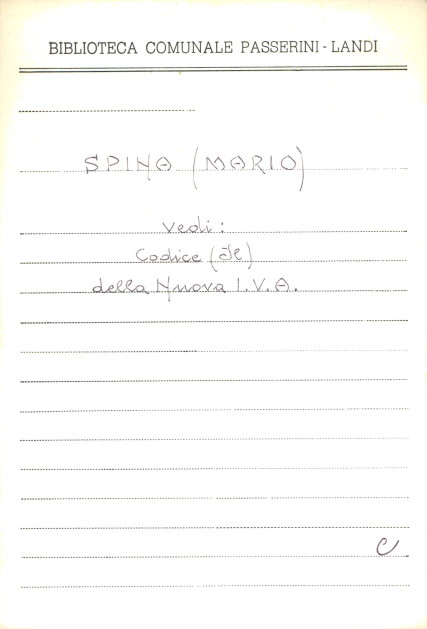 BIBLIOTECA COMUNALE PASSERINI - LANDI
SPINA (MARIO)
Vedi:
Codice (Il)
della Nuova I.V.A.
C